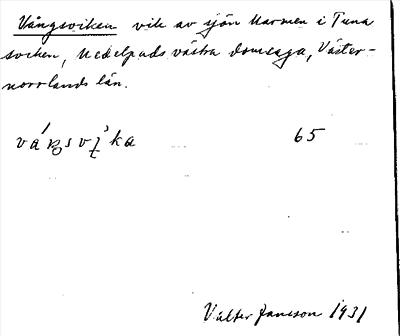 Vångsviken vik av sjön Marmen i Tuna
socken, Medelpads västra domsaga, Väster-
norrlands län.
65
Valter Jansson 1931